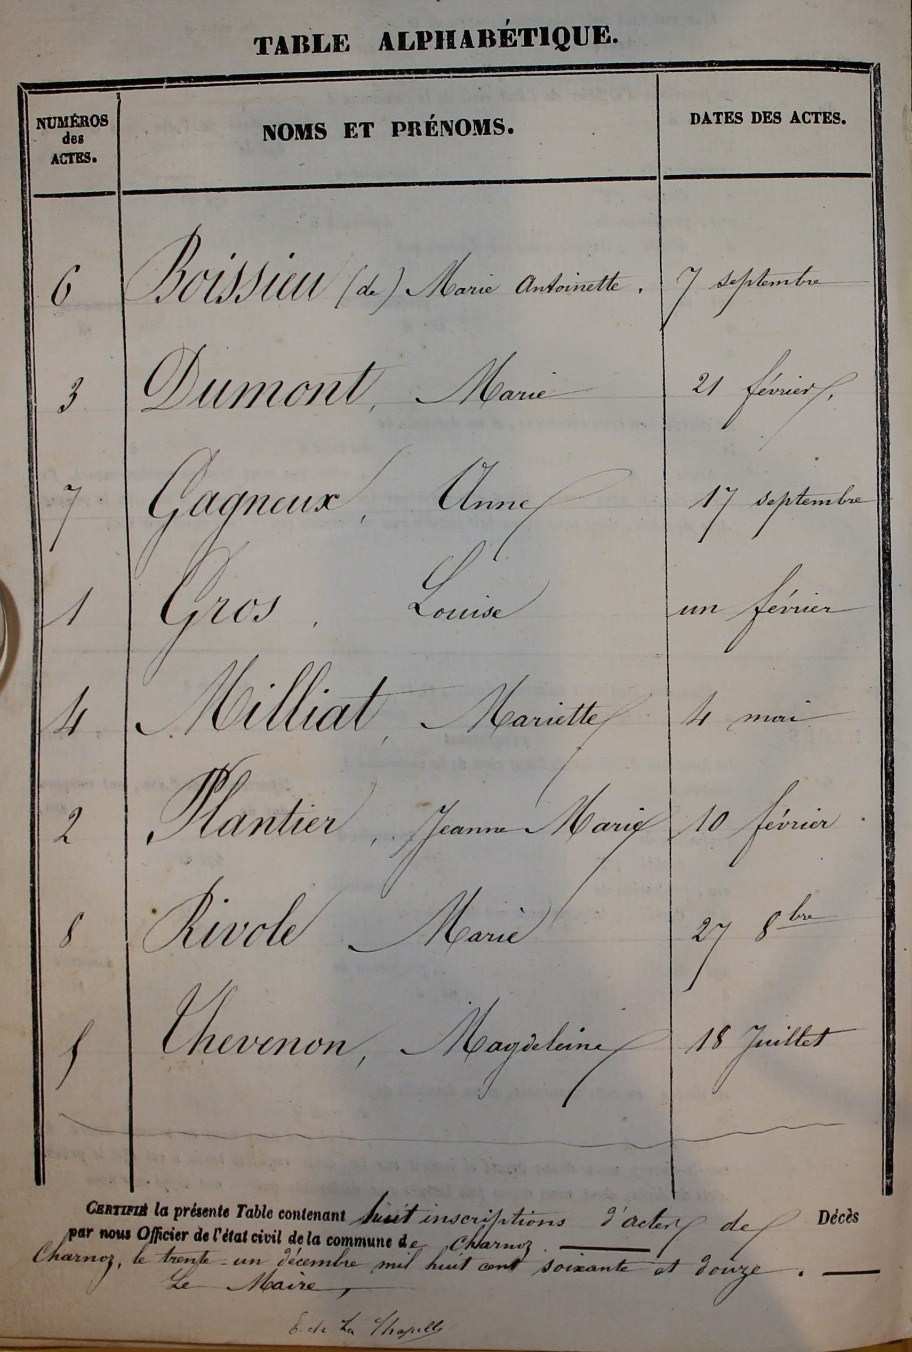 TABLE ALPHABÉTIQUE.
NUMÉROS des ACTES. NOMS ET PRÉNOMS. DATES DES ACTES.
6 Boissieu (de) Marie Antoinette. 7 septembre
3 Dumont, Marie 21 février.
7 Gagneux, Anne 17 septembre
1 Gros, Louise un février
4 Milliat, Mariette 4 mai
2 Plantier, Jeanne Marie 10 février
8 Rivole Marie 27 8bre
5 Thevenon, Magdeleine 18 Juillet
CERTIFIÉ la présente Table contenant huit inscriptions d'actes de Décès
par nous Officier de l'état civil de la commune de Charnoz.
Charnoz, le trente-un décembre mil huit cent soixante et douze.
Le Maire,
E. de La Chapelle